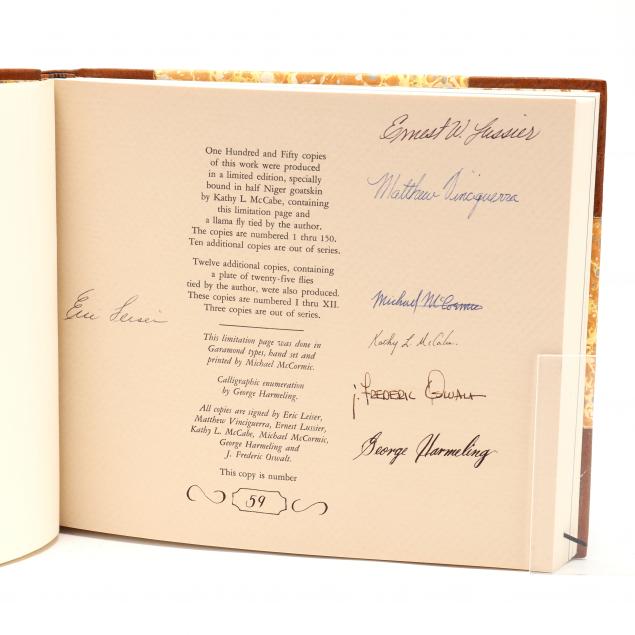 One Hundred and Fifty copies
of this work were produced
in a limited edition, specially
bound in half Niger goatskin
by Kathy L. McCabe, containing
this limitation page and
a llama fly tied by the author.
The copies are numbered 1 thru 150.
Ten additional copies are out of series.
Twelve additional copies, containing
a plate of twenty-five flies
tied by the author, were also produced.
These copies are numbered I thru XII.
Three copies are out of series.
This limitation page was done in
Garamond types, hand set and
printed by Michael McCormic.
Calligraphic enumeration
by George Harmeling.
All copies are signed by Eric Leiser,
Matthew Vinciguerra, Ernest Lussier,
Kathy L. McCabe, Michael McCormic,
George Harmeling and
J. Frederic Oswalt.
This copy is number
59
Eric Leiser
Ernest W. Lussier
Matthew Vinciguerra
Michael McCormic
Kathy L. McCabe
j. Frederic Oswalt
George Harmeling